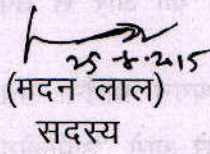 25-8-2015
(मदन लाल)
सदस्य